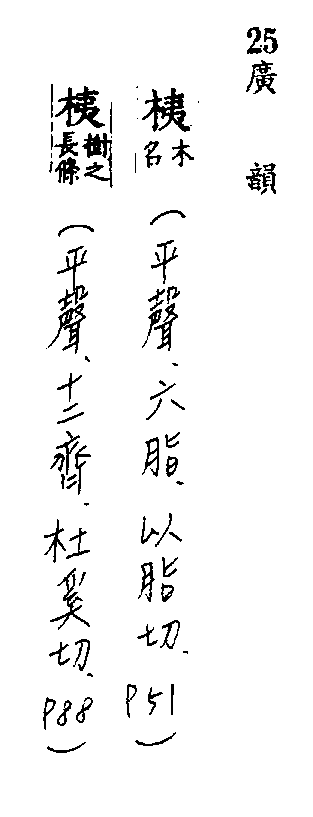 25廣韻
桋木名(平聲、六脂、以脂切、P51)
桋樹之長條(平聲、十二齊、杜奚切、P88)